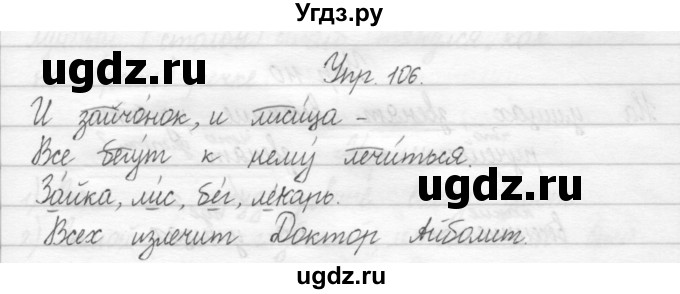 Угдз.ру
ugdz.ru ugdz.ru
Упр. 106.
И зайчо́нок, и лиси́ца –
Все бегу́т к нему́ лечи́ться.
ugdz.ru ugdz.ru
За́йка, ли́с, бе́г, ле́карь.
Всех излечит Доктор Айболит.
ugdz.ru